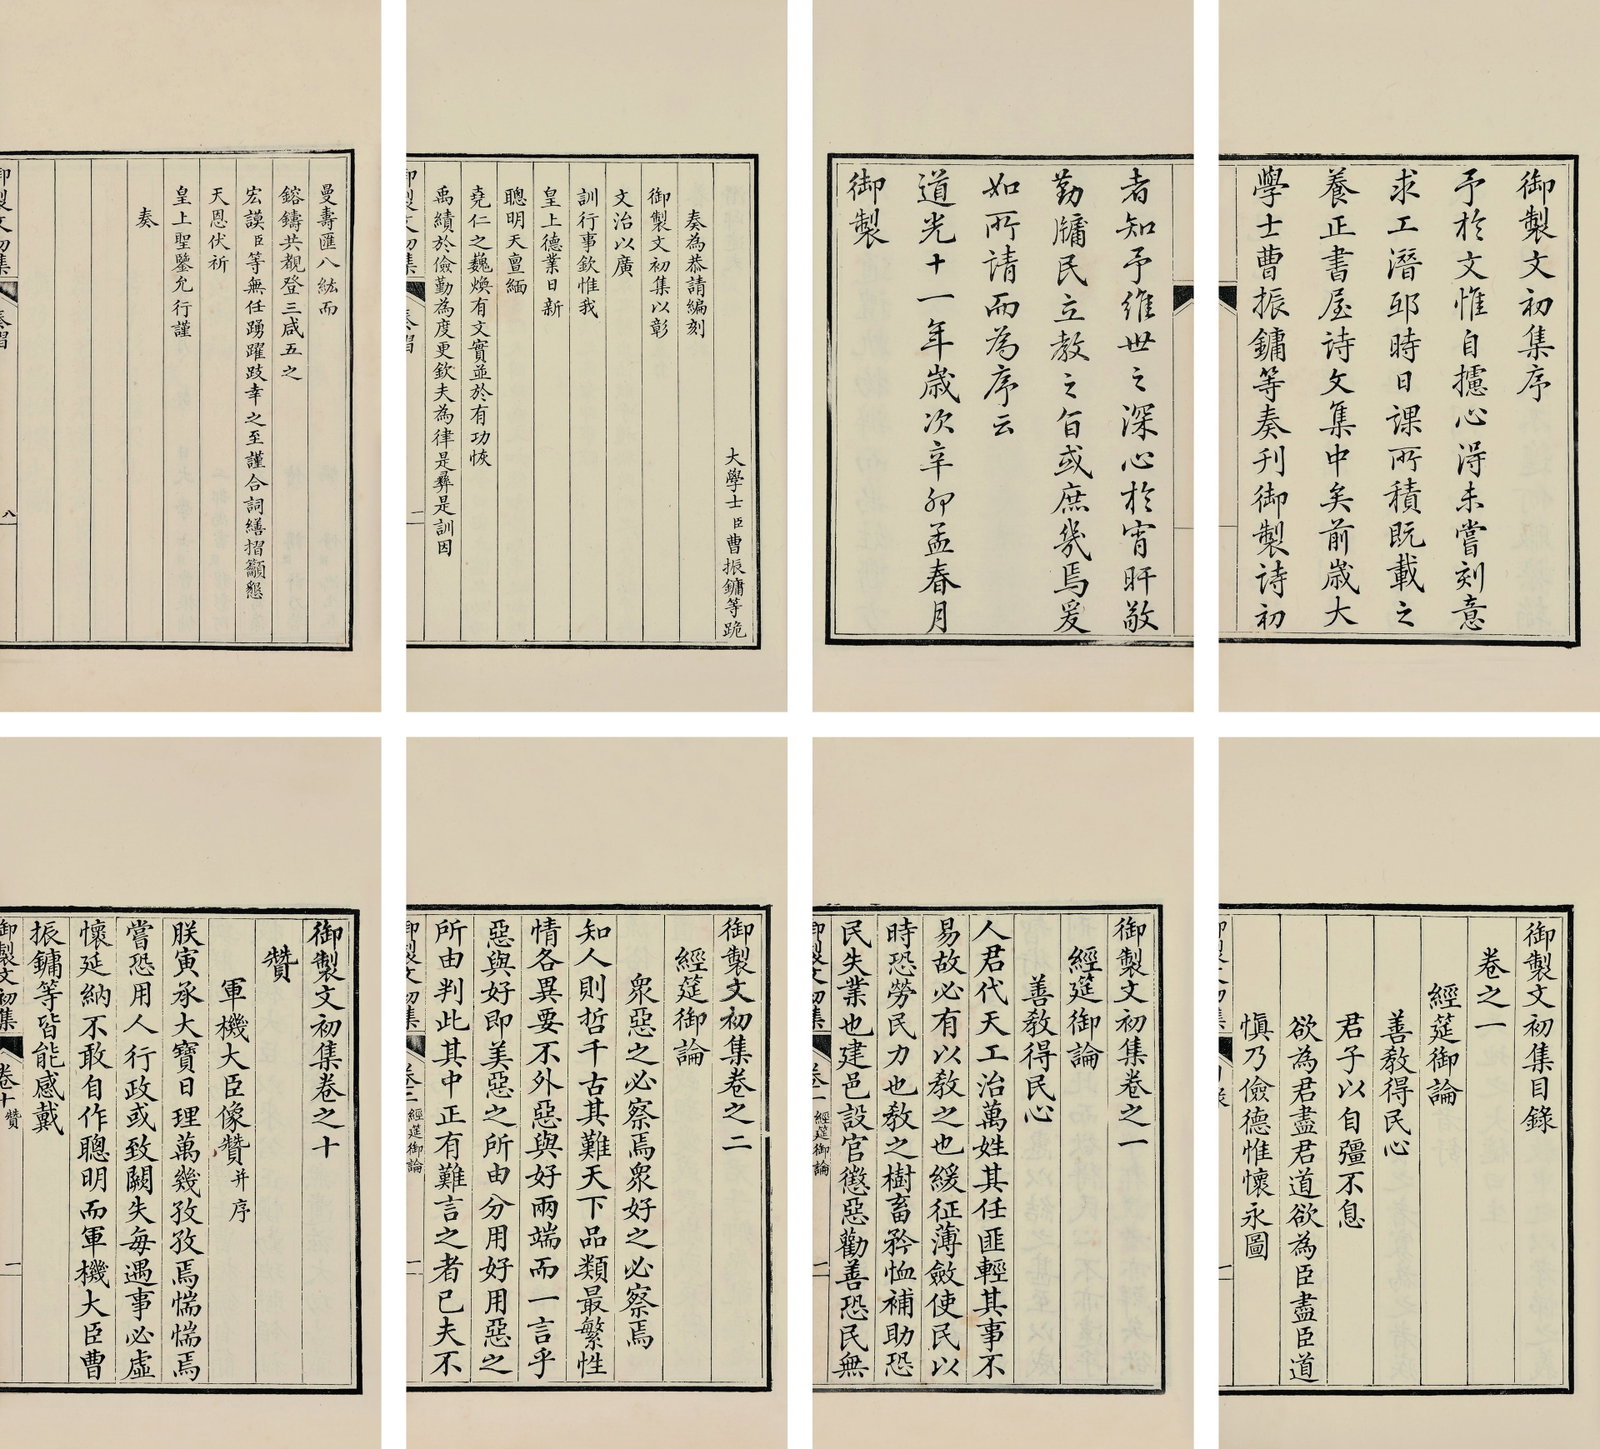 御製文初集序
予於文惟自攄心得未嘗刻意
求工潛邸時日課所積既載之
養正書屋詩文集中矣前歲大
學士曹振鏞等奏刊御製詩初
者知予維世之深心於宵旰敬
勤牖民立教之旨或庶幾焉爰
如所請而為序云
道光十一年歲次辛卯孟春月
御製
大學士臣曹振鏞等跪
奏為恭請編刻
御製文初集以彰
文治以廣
訓行事欽惟我
皇上德業日新
聰明天亶緬
堯仁之巍煥有文實並於有功恢
禹績於儉勤為度更欽夫為律是彝是訓因
御製文初集
奏摺
曼壽匯八紘而
鎔鑄共覩登三咸五之
宏謨臣等無任踴躍跂幸之至謹合詞繕摺籲懇
天恩伏祈
皇上聖鑒允行謹
奏
御製文初集
奏摺
八
御製文初集目錄
卷之一
經筵御論
善教得民心
君子以自彊不息
欲為君盡君道欲為臣盡臣道
慎乃儉德惟懷永圖
御製文初集卷之一
經筵御論
善教得民心
人君代天工治萬姓其任匪輕其事不
易故必有以教之也緩征薄斂使民以
時恐勞民力也教之樹畜矜恤補助恐
民失業也建邑設官懲惡勸善恐民無
御製文初集
卷一
經筵御論
一
御製文初集卷之二
經筵御論
眾惡之必察焉眾好之必察焉
知人則哲千古其難天下品類最繁性
情各異要不外惡與好兩端而一言乎
惡與好即美惡之所由分用好用惡之
所由判此其中正有難言之者已夫不
御製文初集
卷二
經筵御論
一
御製文初集卷之十
贊
軍機大臣像贊并序
朕寅承大寶日理萬幾孜孜焉惴惴焉
嘗恐用人行政或致闕失每遇事必虛
懷延納不敢自作聰明而軍機大臣曹
振鏞等皆能感戴
御製文初集
卷十
贊
一